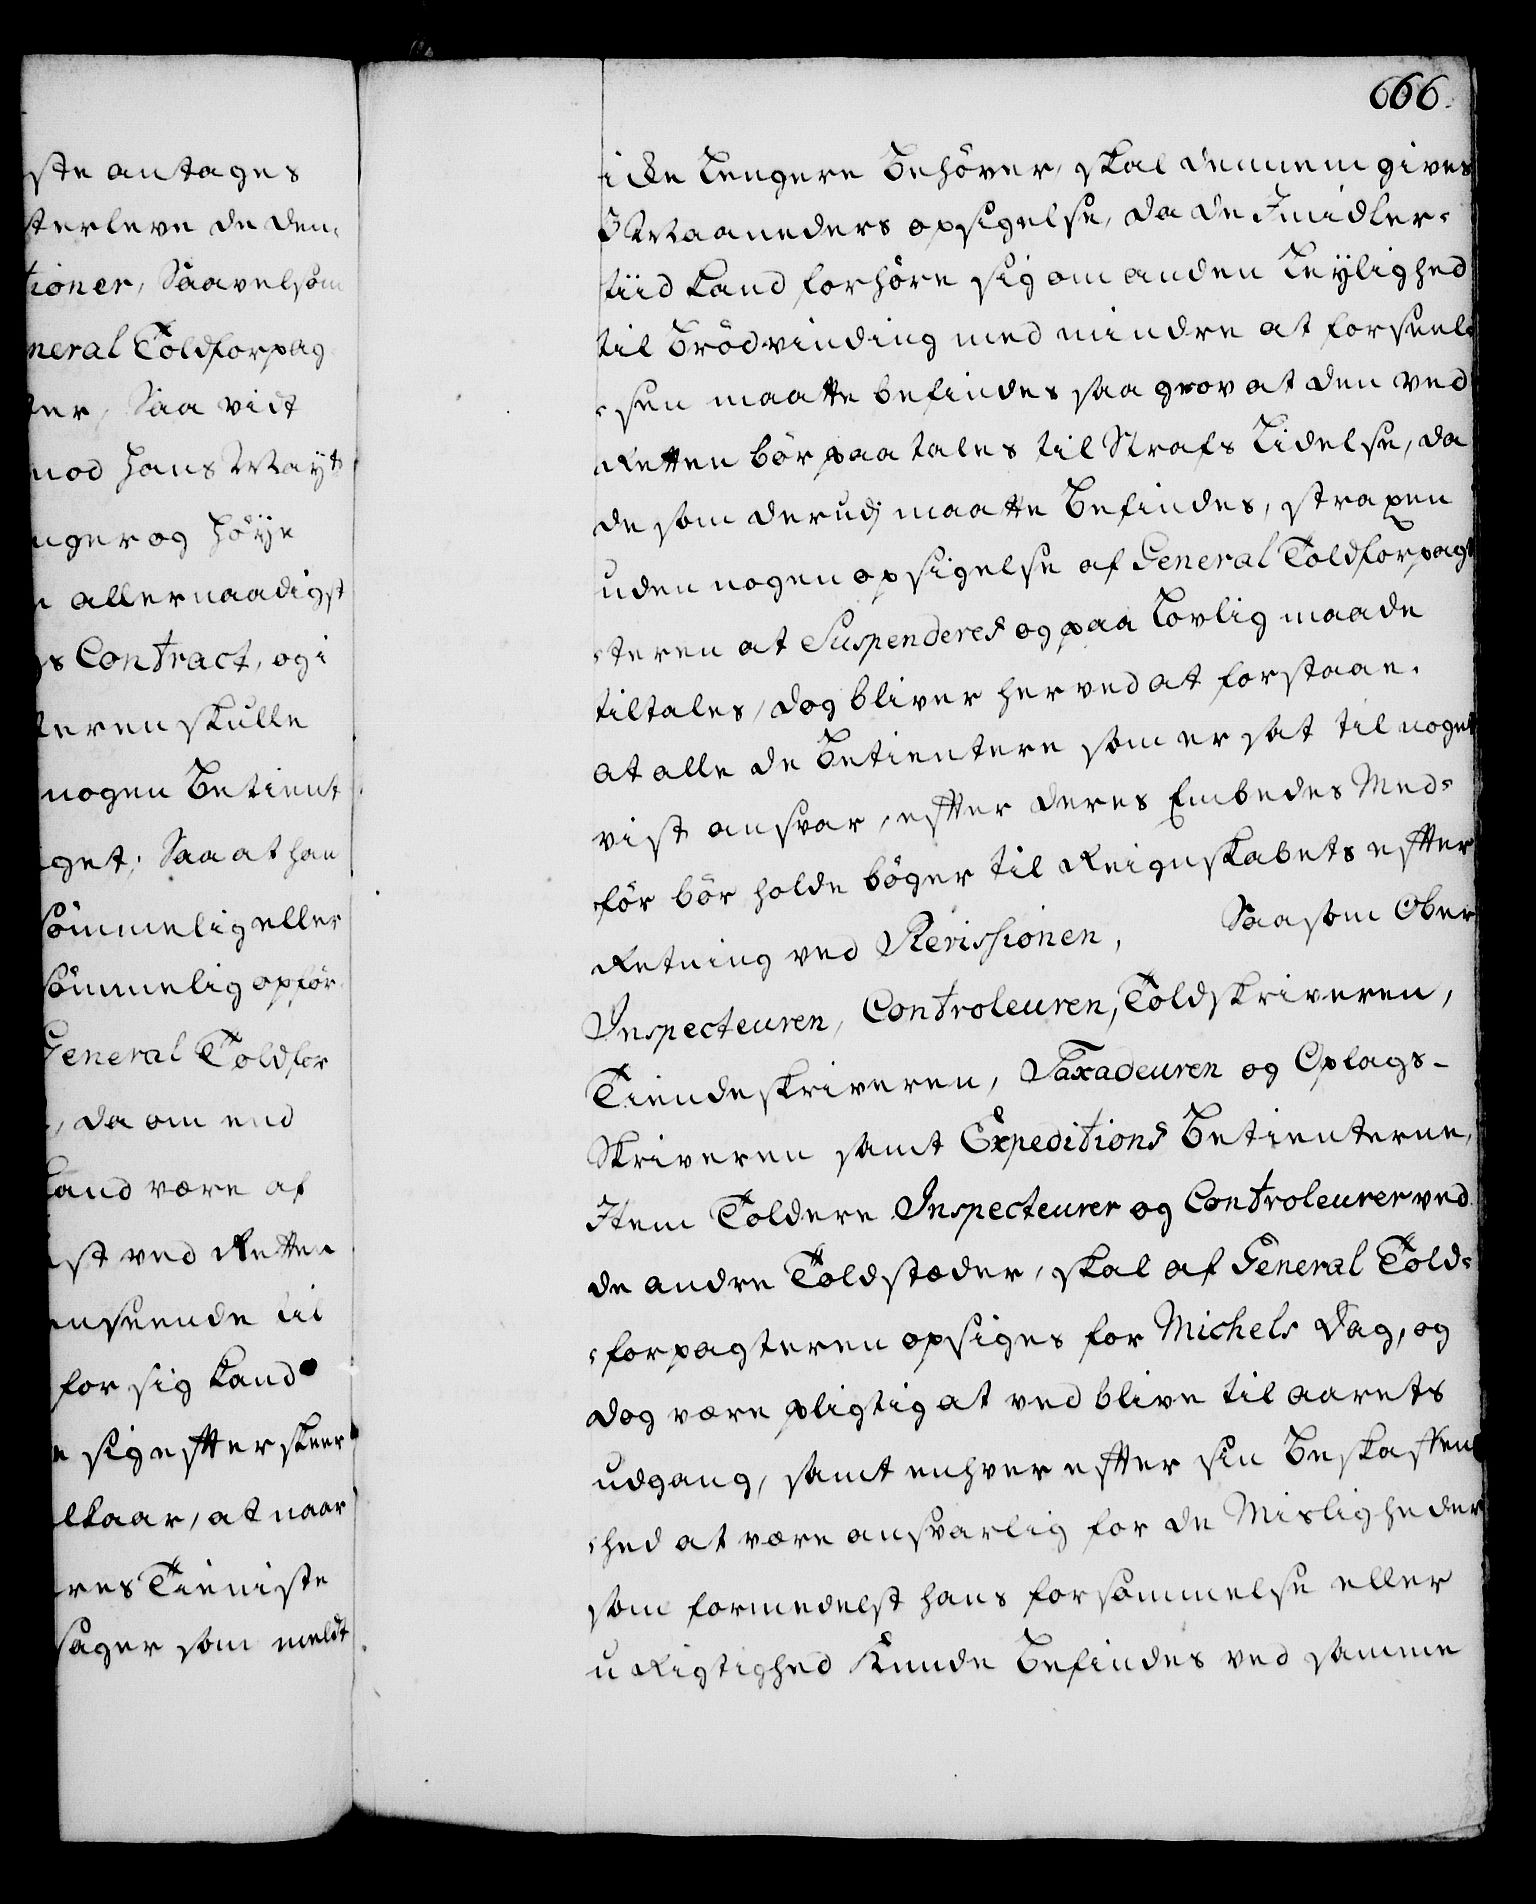 ste antages
sterleve de dem,
tioner, Saavelsom
neral Toldforpag
ter, Saa vidt
mod Hans Mayts
nger og Höye
n allernaadigst
s Contract, og i
teren skulle
nogen Betient
get; Saa at han
sömmelig eller
sömmelig opför
General Toldfor
, da om end
kand være af
st ved Retten
enseende til
for sig kand
e sig efter skeer
lkaar, at naar
res Tieniste
sager som meldt
666.
icke længere Behöver, skal dennem gives
3 Maaneders opsigelse, da de Imidler-
tiid kand forhöre sig om anden Leylighed
til Brödvinding med mindre at forseel-
-sen maatte befindes saa grov at den ved
Retten bör paatales til Strafs Lidelse, da
de som derudj maatte Befindes, straxen
uden nogen opsigelse af General Toldforpagt
-teren at Suspenderes og paa Lovlig maade
tiltales, dog bliver herved at forstaae.
at alle de Betientere som er sat til noget
vist ansvar, efter deres Embedes Med-
för bör holde böger til Reignskabets efter
Retning ved Revissionen, Saasom Ober
Inspecteuren, Controleuren, Toldskriveren,
Tiendeskriveren, Taxadeuren og Oplags-
Skriveren samt Expeditions Betienterne,
Item Toldere Inspecteurer og Controleurer ved
de andre Toldstæder, skal af General Told-
-forpagteren opsiges for Michels Dag, og
dog være pligtig at ved blive til aarets
udgang, samt enhver efter sin Beskaffen
-hed at være ansvarlig for de Misligheder
som formedelst hans forsömmelse eller
u Rigtighed kunde Befindes ved samme